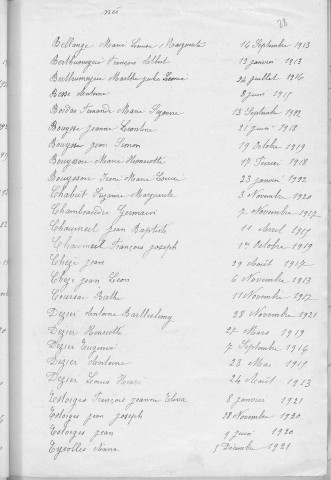 nés
28
Bellange Marie Louise Marguerite 16 Septembre 1913
Berthumeyrie François Albert 13 janvier 1913
Berthumeyrie Marthe julie Léonie 24 juillet 1916
Besse Antoine 8 juin 1915
Bordas Fernande Marie Suzanne 13 Septembre 1912
Bouysse jeanne Léontine 21 juin 1918
Bouysse jean Simon 19 Octobre 1919
Bouyssou Marie Henriette 17 Février 1918
Bouyssou Irène Marie Louise 23 janvier 1912
Chabut Suzanne Marguerite 3 Novembre 1920
Germain 7 Novembre 1917
Chaumeil jean Baptiste 11 Avril 1915
Chaumeil François joseph 1er Octobre 1919
Chèze jean 29 Août 1917
Chèze jean Léon 6 Novembre 1913
Berthe 11 Novembre 1912
Dezier Antoine Barthelemy 28 Novembre 1921
Dezier Henriette 27 Mars 1919
Dezier Eugénie 7 Septembre 1916
Dezier Antoine 23 Mai 1915
Dezier Louis Henri 24 Août 1913
Estorges François jeanne 8 janvier 1921
Estorges jean joseph 28 Novembre 1920
Estorges jean 9 juin 1920
Eyrolles 1 Décembre 1921